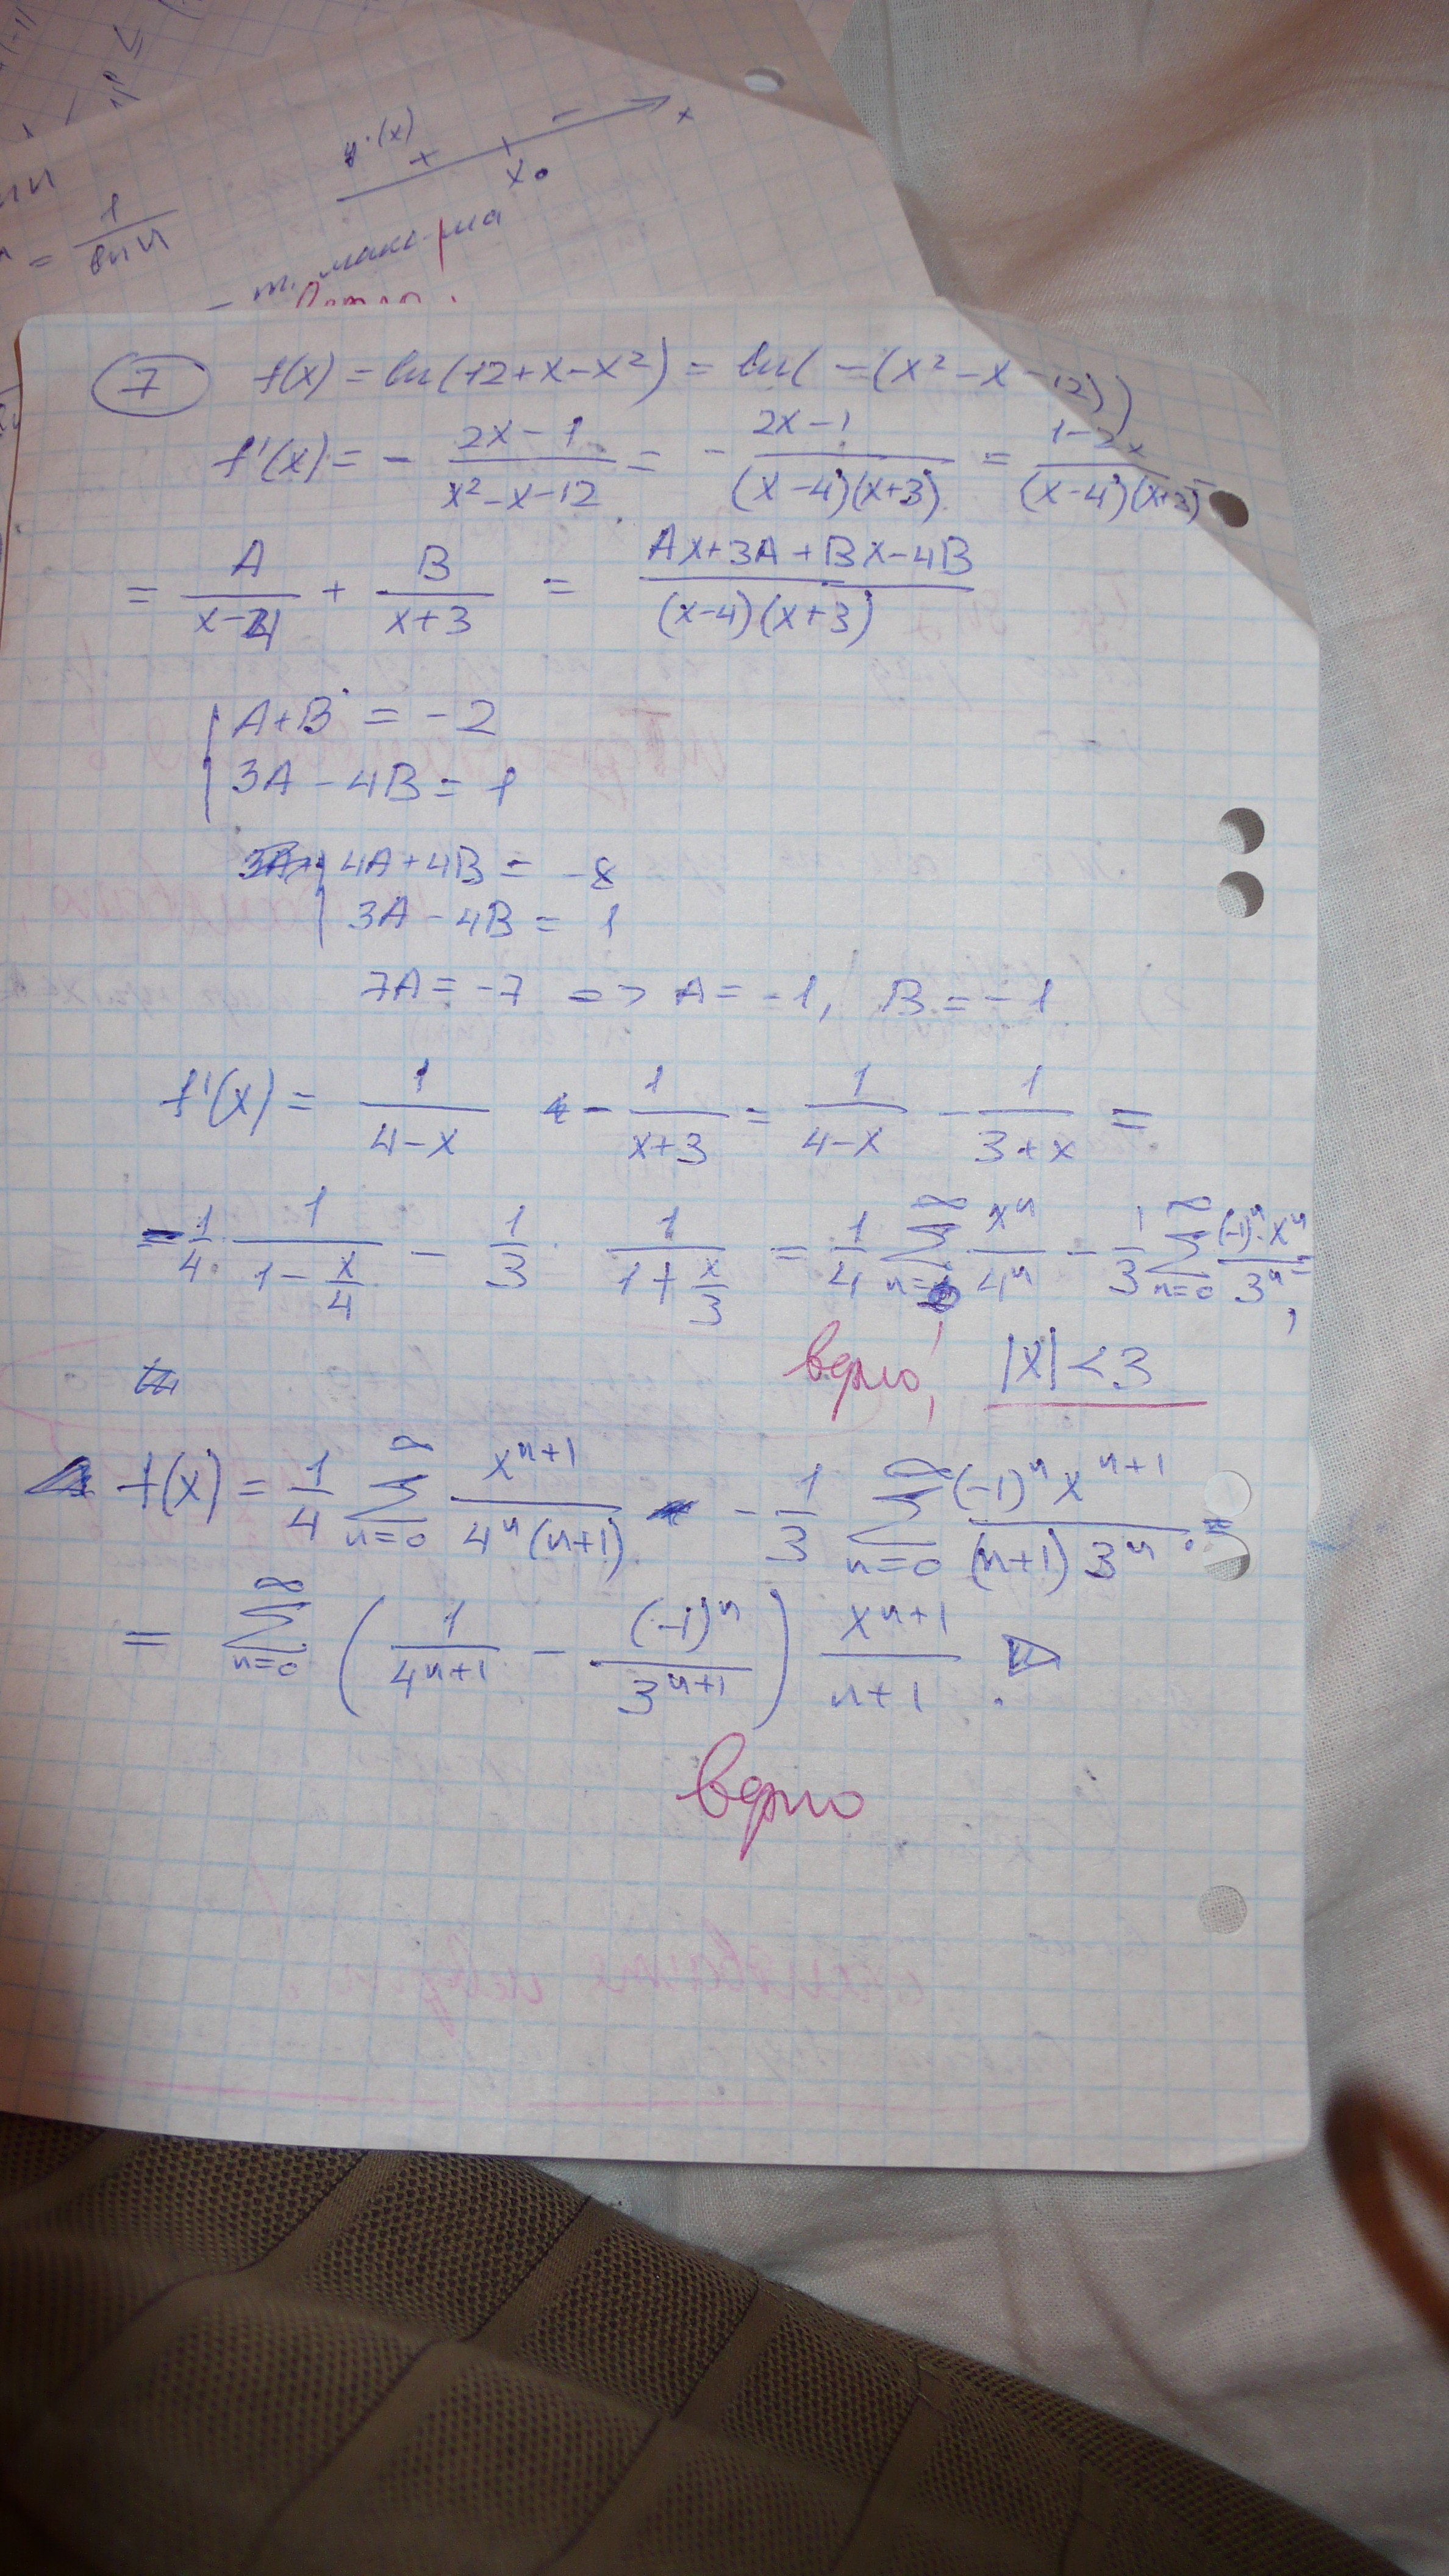 y'(x) + − x
x₀
= 1/ln n
- т. макс-ма
7 f(x) = ln(12+x−x²) = ln(−(x²−x−12))
f'(x) = − (2x−1)/(x²−x−12) = − (2x−1)/((x−4)(x+3)) = (1−2x)/((x−4)(x+3)) =
= A/(x−4) + B/(x+3) = (Ax+3A+Bx−4B)/((x−4)(x+3))
A+B = −2
3A − 4B = 1
4A+4B = −8
3A − 4B = 1
7A = −7 => A = −1, B = −1
f'(x) = 1/(4−x) − 1/(x+3) = 1/(4−x) − 1/(3+x) =
= 1/4 · 1/(1−x/4) − 1/3 · 1/(1+x/3) = 1/4 ∑_{n=0}^{∞} xⁿ/4ⁿ − 1/3 ∑_{n=0}^{∞} (−1)ⁿ·xⁿ/3ⁿ,
верно, |x| < 3
f(x) = 1/4 ∑_{n=0}^{∞} xⁿ⁺¹/(4ⁿ(n+1)) − 1/3 ∑_{n=0}^{∞} (−1)ⁿxⁿ⁺¹/((n+1)3ⁿ) =
= ∑_{n=0}^{∞} (1/4ⁿ⁺¹ − (−1)ⁿ/3ⁿ⁺¹) xⁿ⁺¹/(n+1).
верно